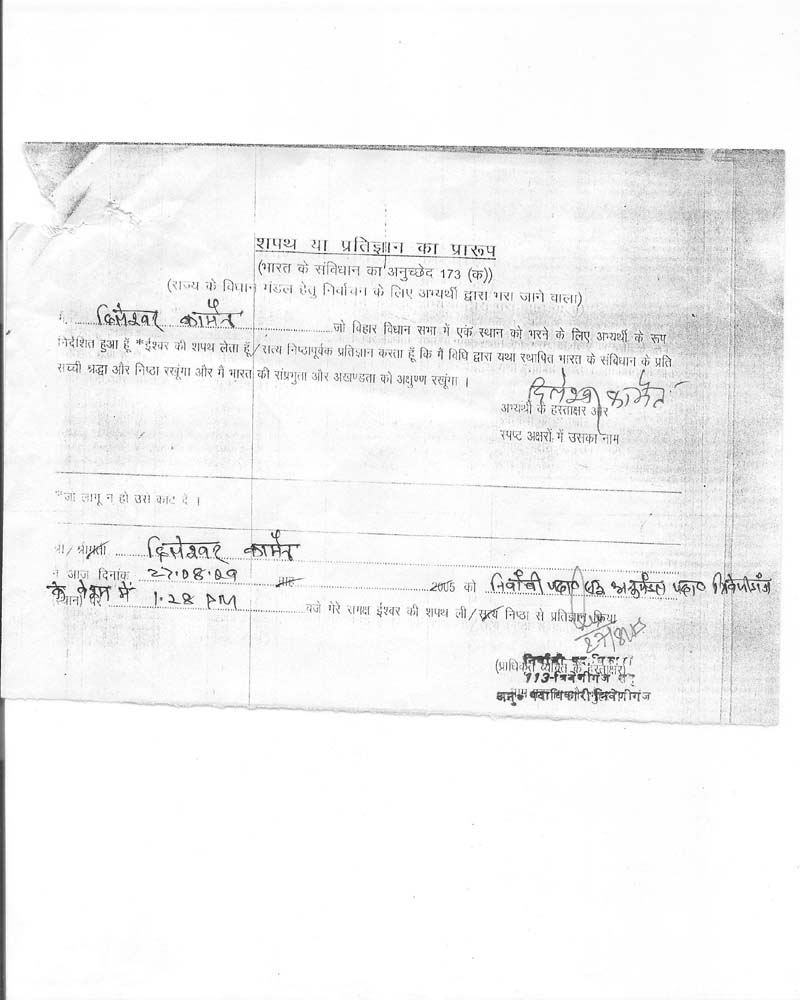 शपथ या प्रतिज्ञान का प्रारूप
(भारत के संविधान का अनुच्छेद 173 (क))
(राज्य के विधान मंडल हेतु निर्वाचन के लिए अभ्यर्थी द्वारा भरा जाने वाला)
दिलेश्वर कामैत जो बिहार विधान सभा में एक स्थान को भरने के लिए अभ्यर्थी के रूप
निर्देशित हुआ हूँ *ईश्वर की शपथ लेता हूँ/सत्य निष्ठापूर्वक प्रतिज्ञान करता हूँ कि मैं विधि द्वारा यथा स्थापित भारत के संविधान के प्रति
सच्ची श्रद्धा और निष्ठा रखूंगा और मैं भारत की संप्रभुता और अखण्डता को अक्षुण्ण रखूंगा ।
दिलेश्वर कामैत
अभ्यर्थी के हस्ताक्षर और
स्पष्ट अक्षरों में उसका नाम
*जो लागू न हो उसे काट दें ।
श्री/श्रीमती दिलेश्वर कामैत
ने आज दिनांक 27.08.09 मास 2005 को निर्वाची पदा० त्रिवेणीगंज
के वेश्म में (स्थान) पर 1.28 PM बजे मेरे समक्ष ईश्वर की शपथ ली/सत्य निष्ठा से प्रतिज्ञान किया
(प्राधिकृत व्यक्ति के हस्ताक्षर)
113-त्रिवेणीगंज
अनु० पदाधिकारी त्रिवेणीगंज